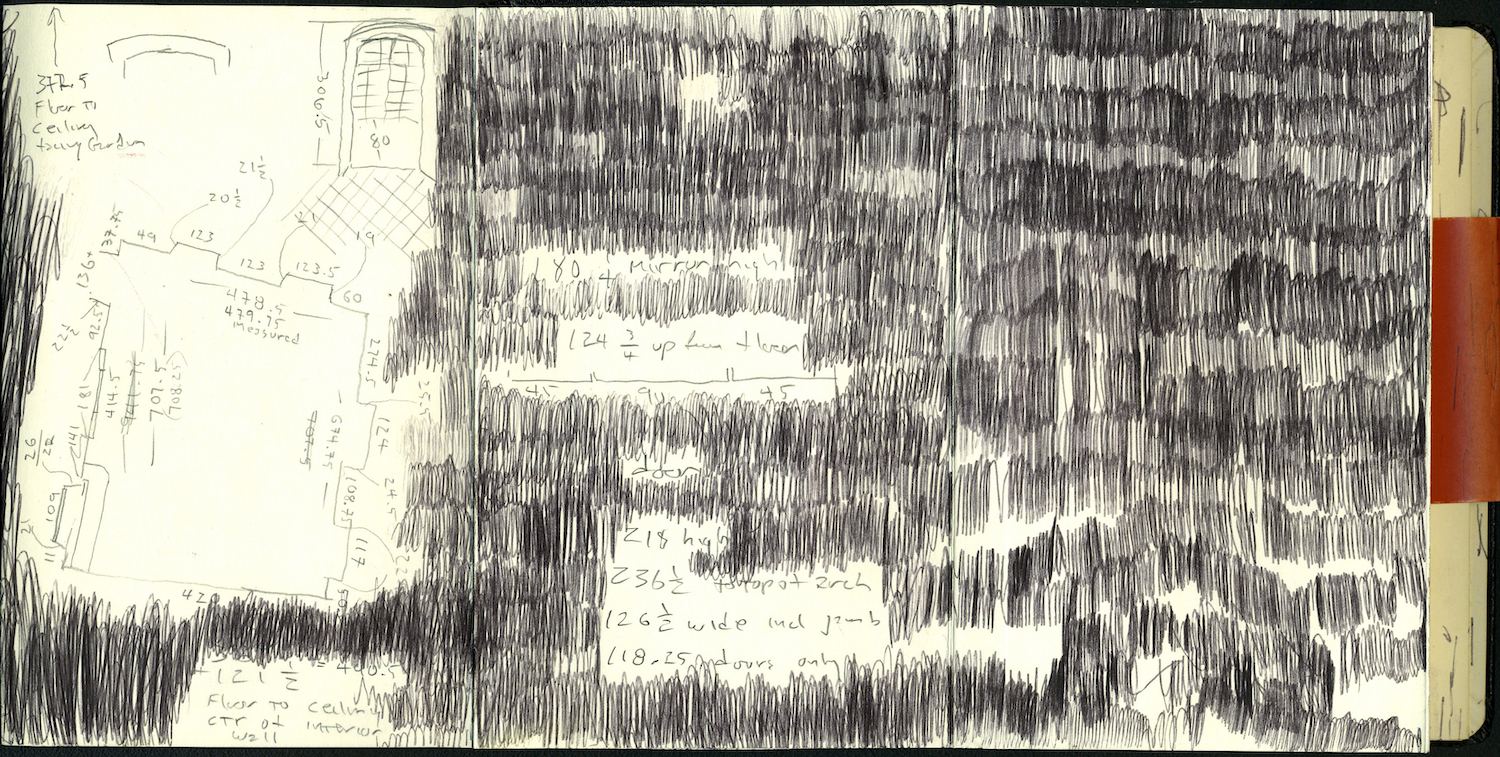 Floor To
ceiling
facing Garden
306.5
80
21 1/2
20 1/2
21
19
37.75
49
123
123
123.5
60
136+
478.5
479.75
measured
22 1/2
92.5
274.5
181
414.5
707.5
(708.25)
25.5
674.75
707.5
124
26
141
109
108.75
24.5
21
11
117
420
121 1/2
Floor To ceiling
CTR of interior
wall
180
mirror high
124 3/4 up from floor
45
90
45
door
218 high
236 1/2 to top of arch
126 1/2 wide incl jamb
118.25 doors only